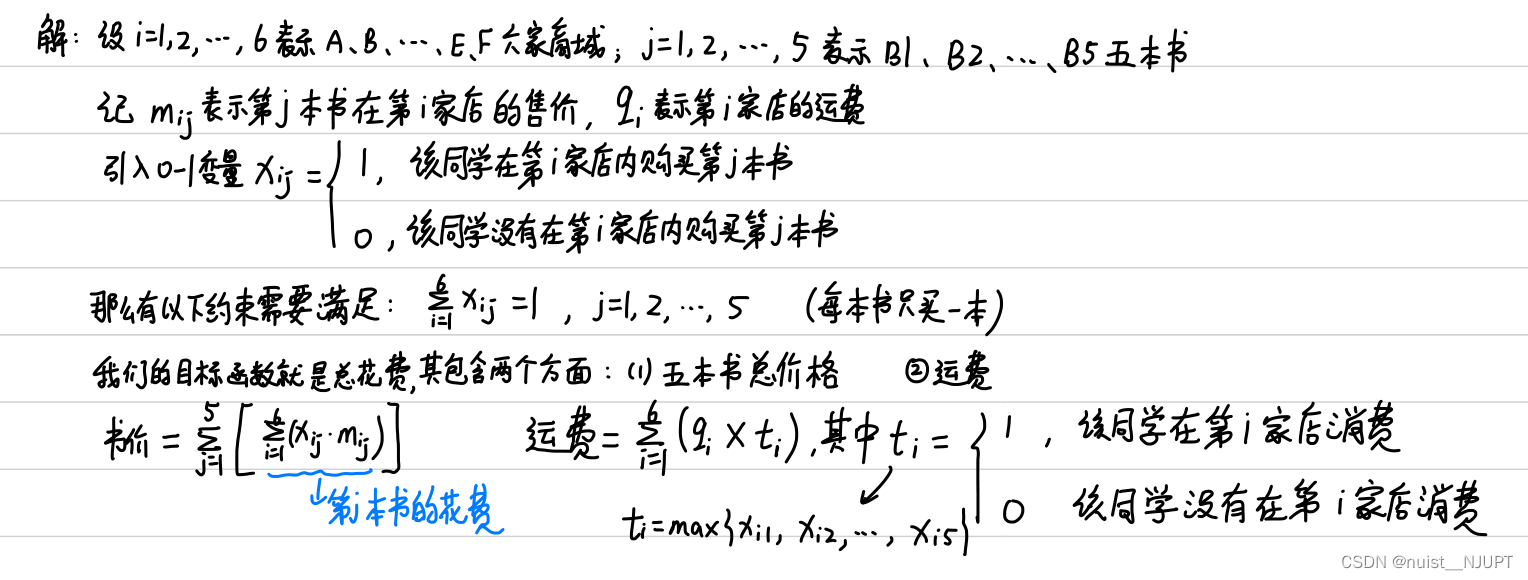 解: 设 i=1,2,…,6 表示 A、B、…、E、F 六家商城; j=1,2,…,5 表示 B1、B2、…、B5 五本书
记 mij 表示第j本书在第i家店的售价, qi 表示第i家店的运费
引入0-1变量 xij = { 1, 该同学在第i家店内购买第j本书
0, 该同学没有在第i家店内购买第j本书
那么有以下约束需要满足: ∑_{i=1}^{6} xij = 1 , j=1,2,…,5 (每本书只买一本)
我们的目标函数就是总花费,其包含两个方面: (1) 五本书总价格 ②运费
书价 = ∑_{j=1}^{5} [ ∑_{i=1}^{6} (xij · mij) ] 运费 = ∑_{i=1}^{6} (qi × ti), 其中 ti = { 1 , 该同学在第i家店消费
↓第j本书的花费
0 该同学没有在第i家店消费
ti = max{xi1, xi2, …, xi5}
CSDN @nuist__NJUPT